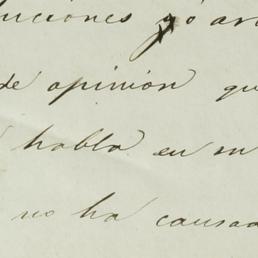 uciones y o
de opinion qu
habla en su
no ha causad